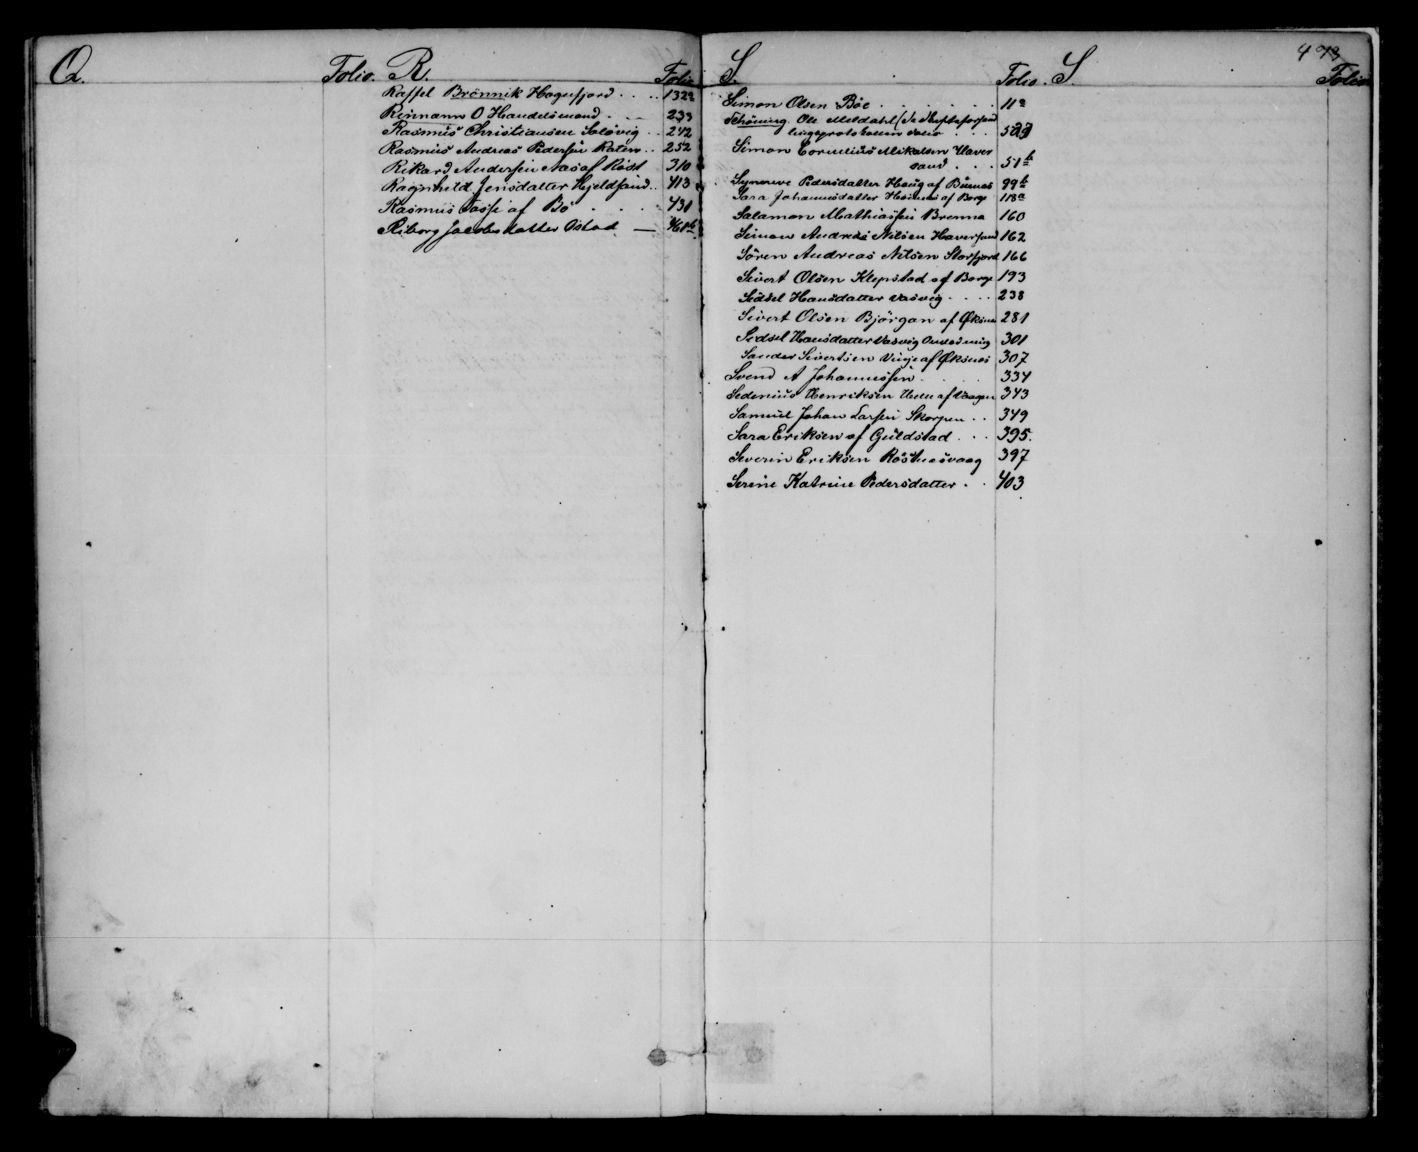 Q.
Folio.
R.
Folio
Raffel Brönnik Hognfjord . . . . 132a
Reimann O Handelsmand . . . 233
Rasmus Christiansen Solövig . . 242
Rasmus Andreas Pedersen Raten . . 252
Rikard Andersen Aas af Röst 310
Ragnhild Jensdatter Hjeldsand . . 413
Rasmus Tasse af Bö . . . . 431
Riborg Jacobsdatter Ostad — 461b
S.
Folio.
Simon Olsen Böe . . . . . . 11a
Schöning. Ole Meldahl (
lingsprotokollen
Simon Cornelius Mikalsen Haver
sand . . . 51b
Synneve Pedersdatter Haug af Büxnes 99b
Sara Johannesdatter af Borge 118a
Salamon Mathiassen Brenna 160
Simon Andreas Nilsen Haversand 162
Sören Andreas Nilsen Storfjord 166
Sivert Olsen Klepstad af Borge 193
Sidsel Hansdatter Vasvig . . . . 238
Sivert Olsen Björgan af Öksnes 281
Sidsel Hansdatter Vasvig 301
Sander Sivertsen Vinje af Öksnes 307
Svend A Johannessen . . . . 334
Sedenius Henriksen af Vaagen 343
Samuel Johan Larsen Skorpen . . 349
Sara Eriksen af Guldstad . . . 395.
Severin Eriksen Rösnesvaag 397
Serine Katrine Pedersdatter . . 403
S
473
Folio